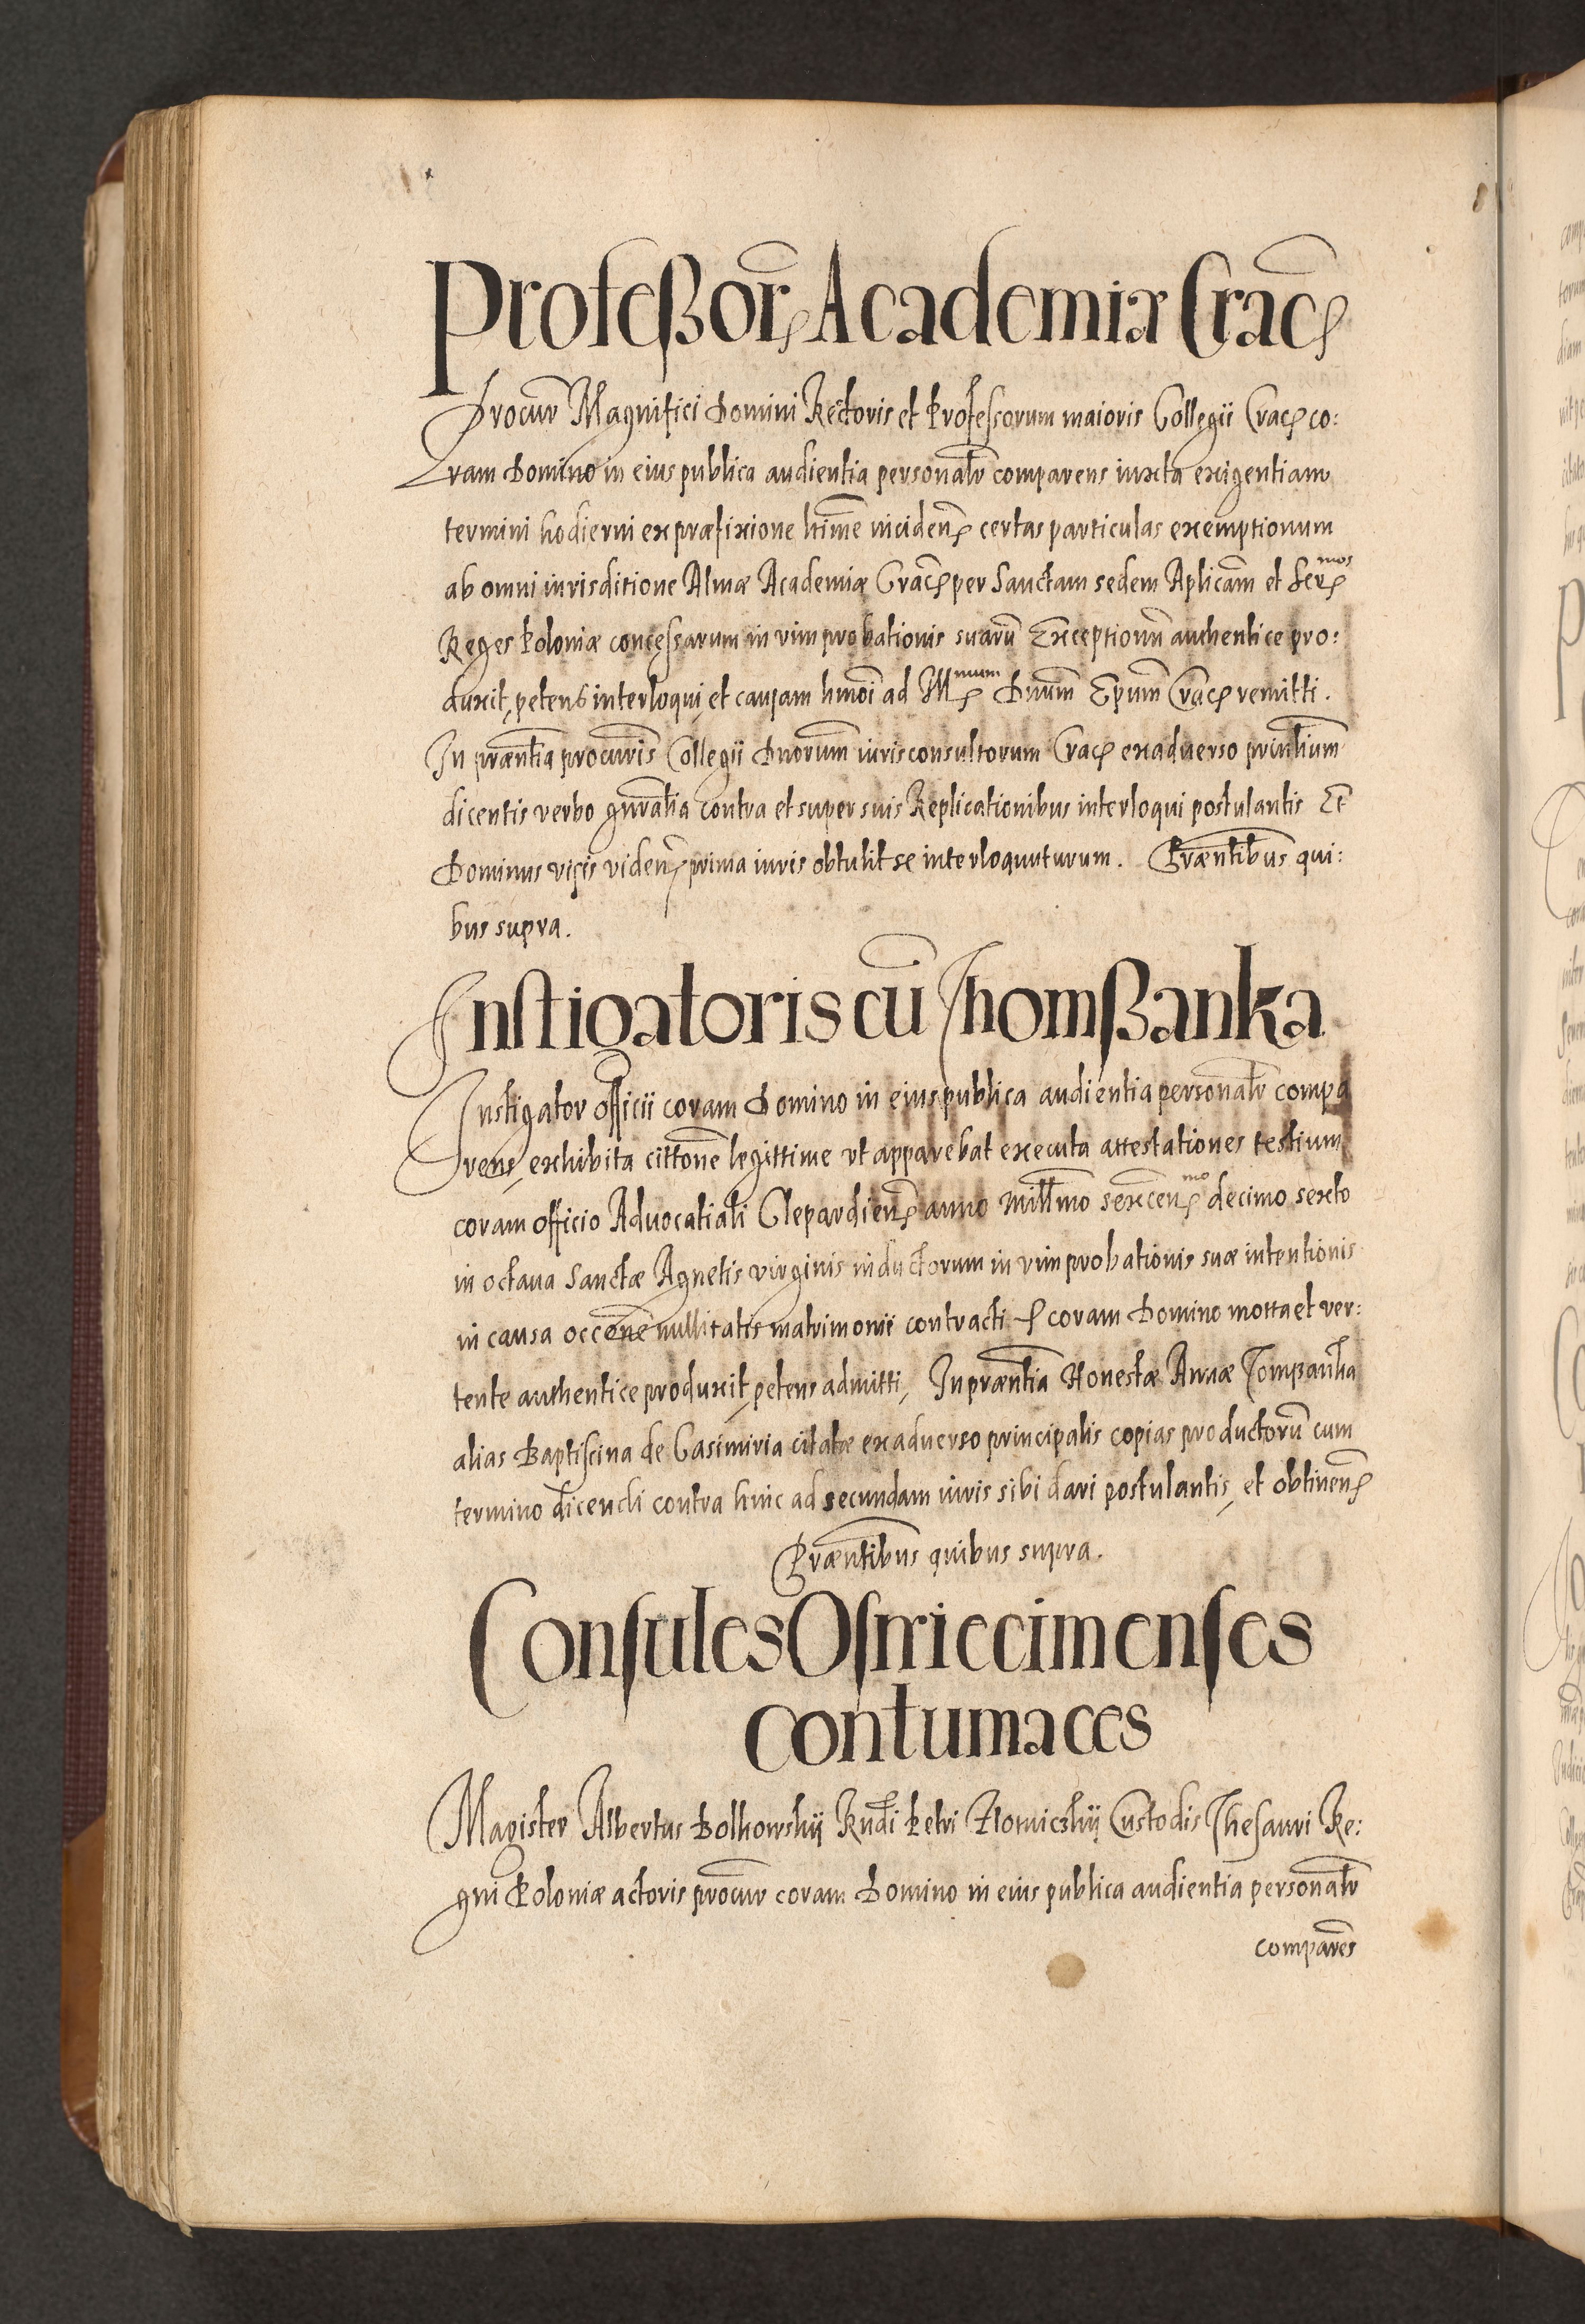 Profeßor̃ Academiæ Crac̃
Procur Magnifici Domini Rectoris et Professorum maioris Collegii Crac̃ co:
ram Domino in eius publica audientia personalr̃ comparens iuxta exigentiam
termini hodierni ex præfixione certas particulas exemptionum
ab omni iurisditione Almæ Academiæ Crac̃ per Sanctam sedem Aplicam̃ et Ser̃mos
Reges Poloniæ concessarum in vim probationis suarũ Exceptionũ authentice pro:
duxit, petens interloqui, et causam hmõi ad Dnũm Epum̃ Crac̃ remitti.
In præntĩa procuris̃ Collegii Dnorum̃ iurisconsultorum Crac̃ ex aduerso
dicentis verbo gnralĩa contra et super suis Replicationibus interloqui postulantis Et
Dominus visis videñ prima iuris obtulit se interloquuturum. Præntibus̃ qui:
bus supra.
Instigatoris cũ Thomßanka
Instigator officii coram Domino in eius publica audientia personalr̃ compa
rens, exhibita cittonẽ legittime vt apparebat executa attestationes testium
coram officio Aduocatiali Clepardieñ anno mill̃mo sexceñmo decimo sexto
in octaua Sanctæ Agnetis virginis inductorum in vim probationis suæ intentionis
in causa occonẽ nullitatis matrimonii contracti coram Domino mota et ver:
tente authentice produxit, petens admitti, In præntĩa Honestæ Annæ Tomßanka
alias Baptiscina de Casimiria citatæ ex aduerso principalis copias productorũ cum
termino dicendi contra hinc ad secundam iuris sibi dari postulantis, et obtineñ
Præntibus̃ quibus supra.
Consules Osṅriecimenses
contumaces
Magister Albertus Bolkowskij Rndĩ Petri Custodis Thesauri Re:
gni Poloniæ actoris procur coram Domino in eius publica audientia personalr̃
comparẽs